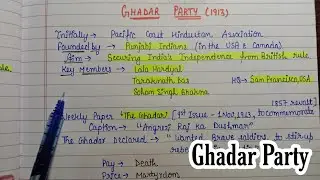 GHADAR PARTY (1913)
Initially → Pacific Coast Hindustan Association
Founded by → Punjabi Indians (in the USA & Canada)
Aim → Securing India's Independence from British rule
Key Members → Lala Hardyal
Taraknath Das HQ → San Francisco, USA
Sohan Singh Bhakna
1857 revolt]
Weekly Paper "The Ghadar" [1st Issue - 1 Nov, 1913, to commemorate
Caption → "Angrezi Raj ka Dushman"
The Ghadar Declared → "Wanted Brave soldiers to stir up
Pay → Death
Price → Martyrdom
Ghadar Party